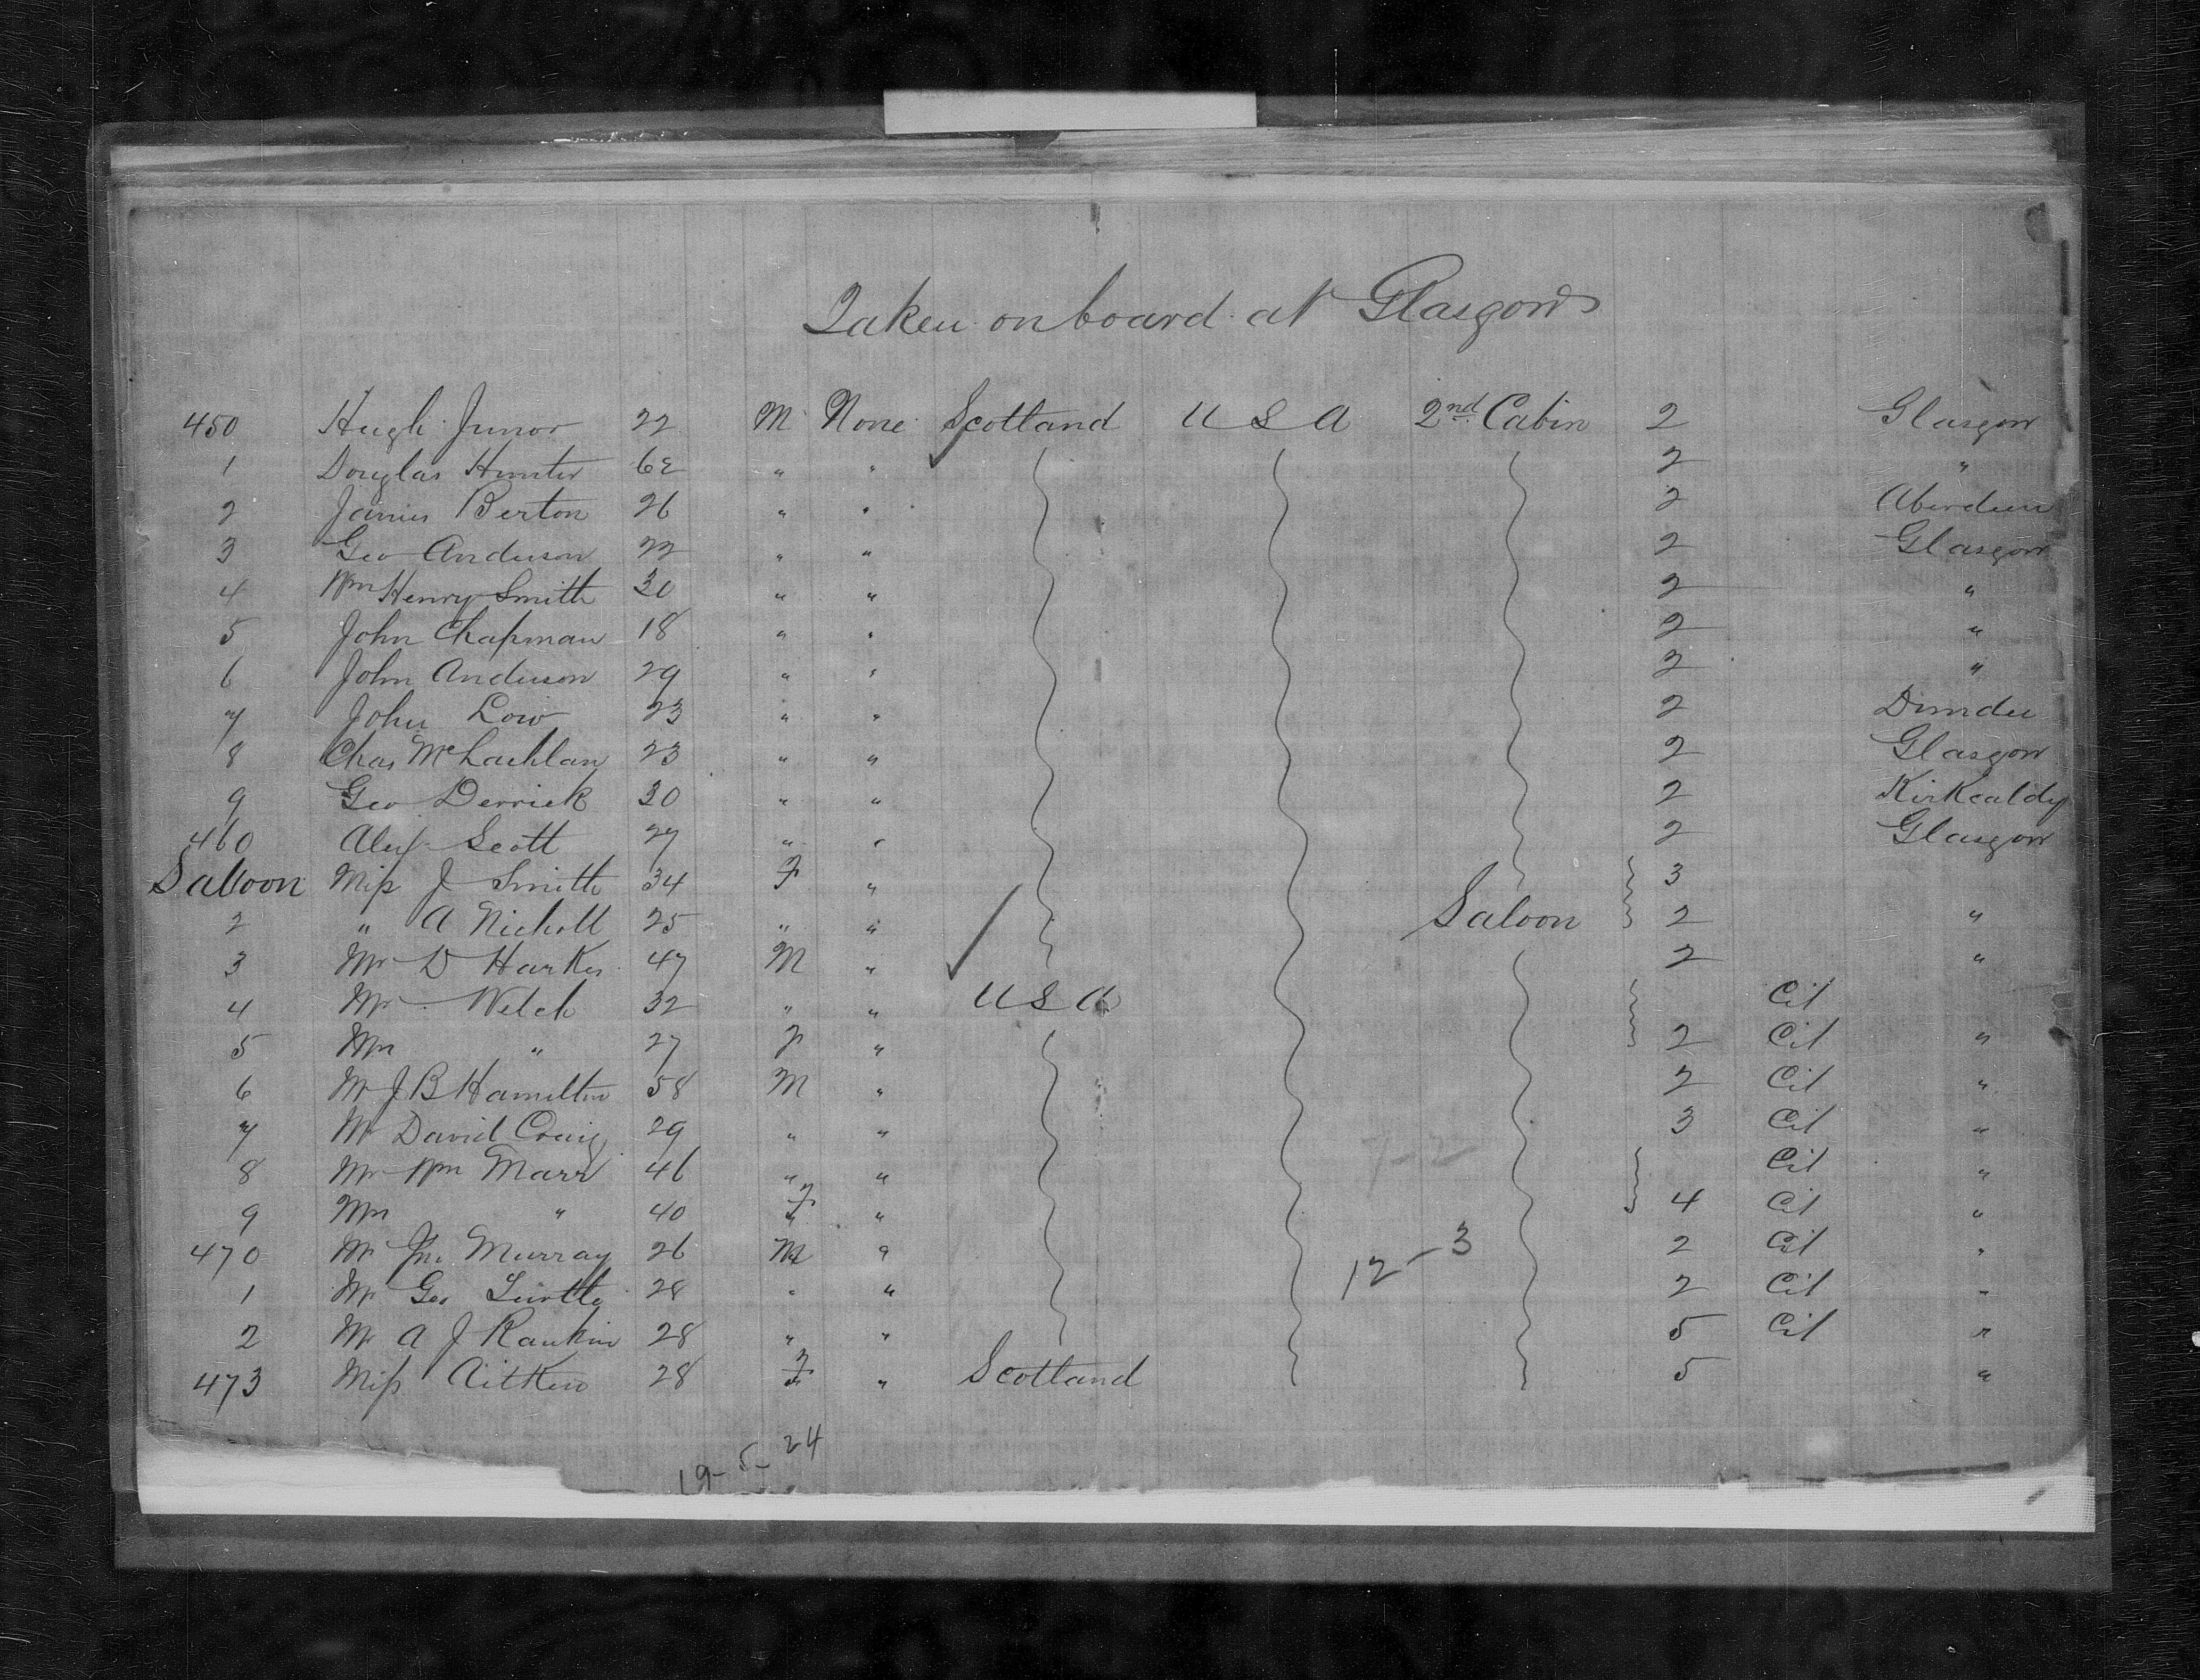 Taken on board at Glasgow
450 Hugh Junor 22 M None Scotland U S A 2nd Cabin 2 Glasgow
1 Douglas Hunter 62 " " 2 "
2 James Berton 26 " " 2 Aberdeen
3 Geo Anderson 22 " " 2 Glasgow
4 Wm Henry Smith 30 " " 2 "
5 John Chapman 18 " " 2 "
6 John Anderson 29 " " 2 "
7 John Low 23 " " 2 Dundee
8 Chas McLachlan 23 " " 2 Glasgow
9 Geo Derrick 30 " " 2 Kirkcaldy
460 Alex Scott 27 " " 2 Glasgow
Saloon Miss J Smith 34 F " 3
2 " A Nicholl 25 " " Saloon 2 "
3 Mr D Harkes 47 M " 2 "
4 Mr Welch 32 " " U S A Cit
5 Mrs " 27 F " 2 Cit "
6 Mr J B Hamilton 58 M " 2 Cit "
7 Mr David Craig 29 " " 3 Cit "
8 Mr Wm Marr 46 " " Cit "
9 Mrs " 40 F " 4 Cit "
470 Mr Jno Murray 26 M " 2 Cit "
12-3
1 Mr Geo 28 " " 2 Cit "
2 Mr A J Rankin 28 " " 5 Cit "
473 Miss Aitken 28 F " Scotland 5 "
19-5-24